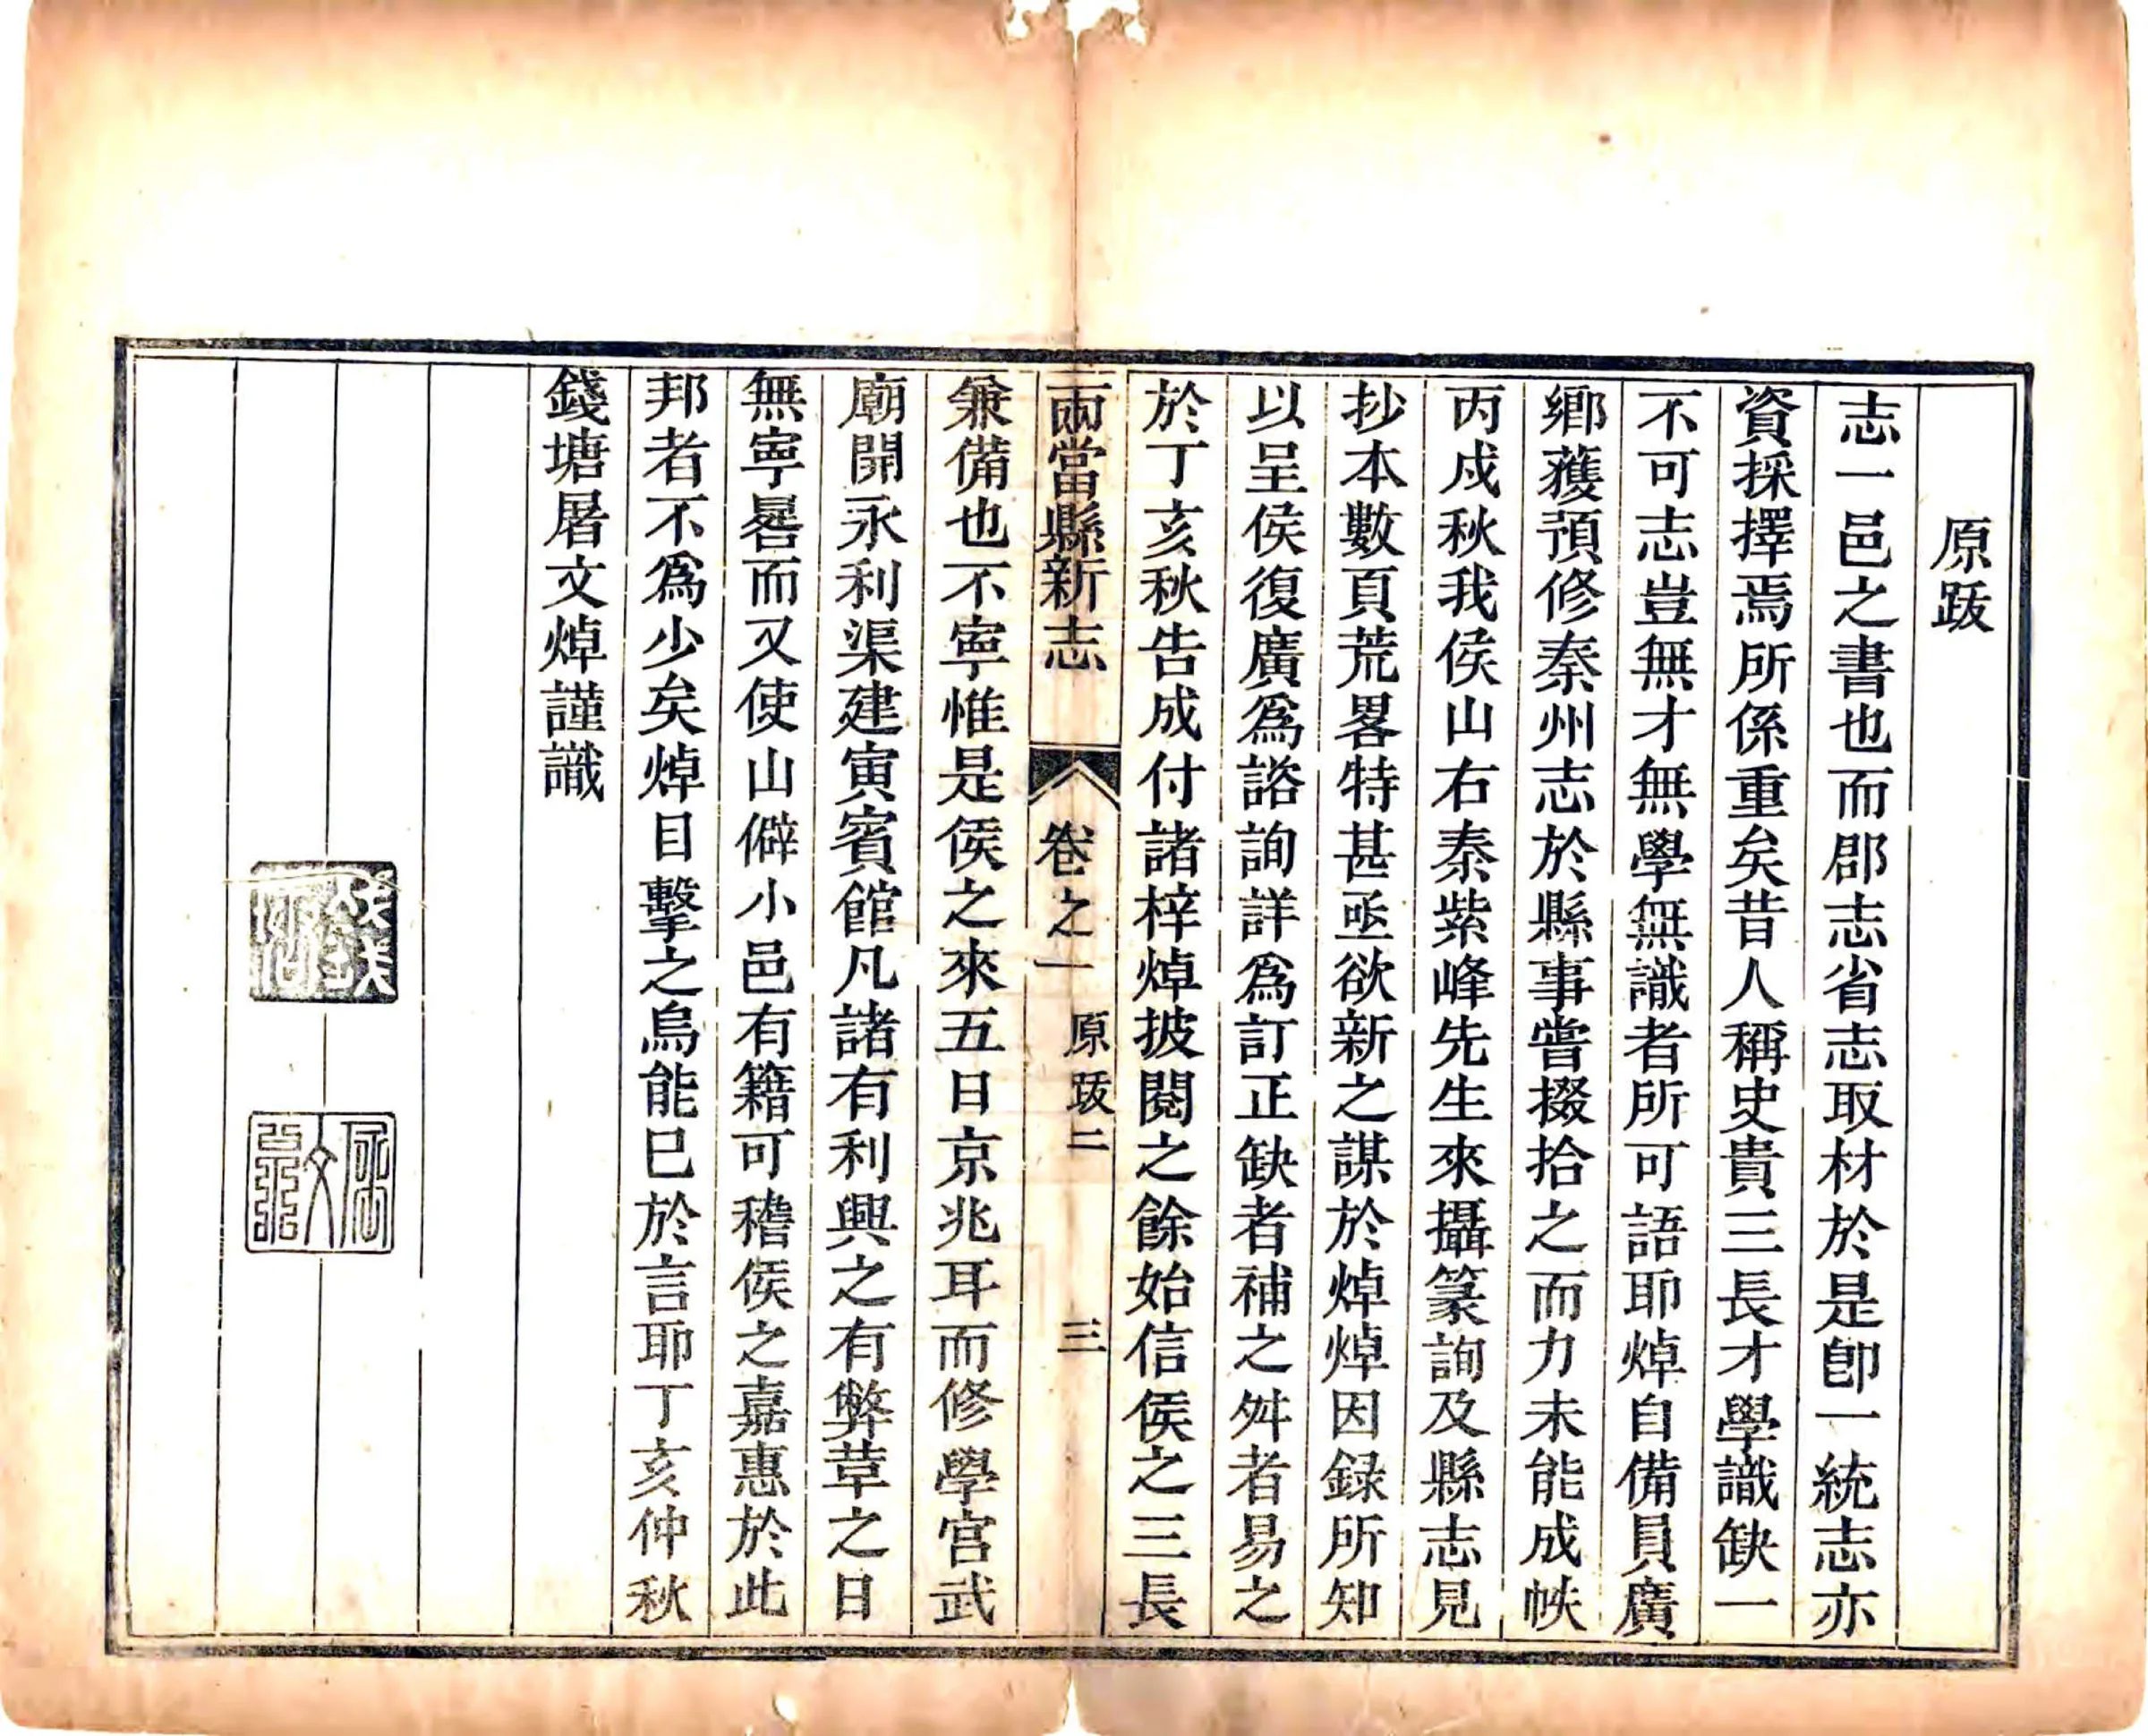 原跋
志一邑之書也而郡志省志取材於是卽一統志亦
資採擇焉所係重矣昔人稱史貴三長才學識缺一
不可志豈無才無學無識者所可語耶焯自備員廣
鄉獲預修秦州志於縣事嘗掇拾之而力未能成帙
丙戍秋我侯山右秦紫峰先生來攝篆詢及縣志見
抄本數頁荒畧特甚亟欲新之謀於焯焯因録所知
以呈侯復廣爲諮詢詳爲訂正缺者補之舛者易之
於丁亥秋告成付諸梓焯披閱之餘始信侯之三長
兩當縣新志
卷之一
原跋二
三
兼備也不寧惟是侯之來五日京兆耳而修學宮武
廟開永利渠建寅賓館凡諸有利興之有弊革之日
無寧晷而又使山僻小邑有籍可稽侯之嘉惠於此
邦者不爲少矣焯目擊之烏能巳於言耶丁亥仲秋
錢塘屠文焯謹識